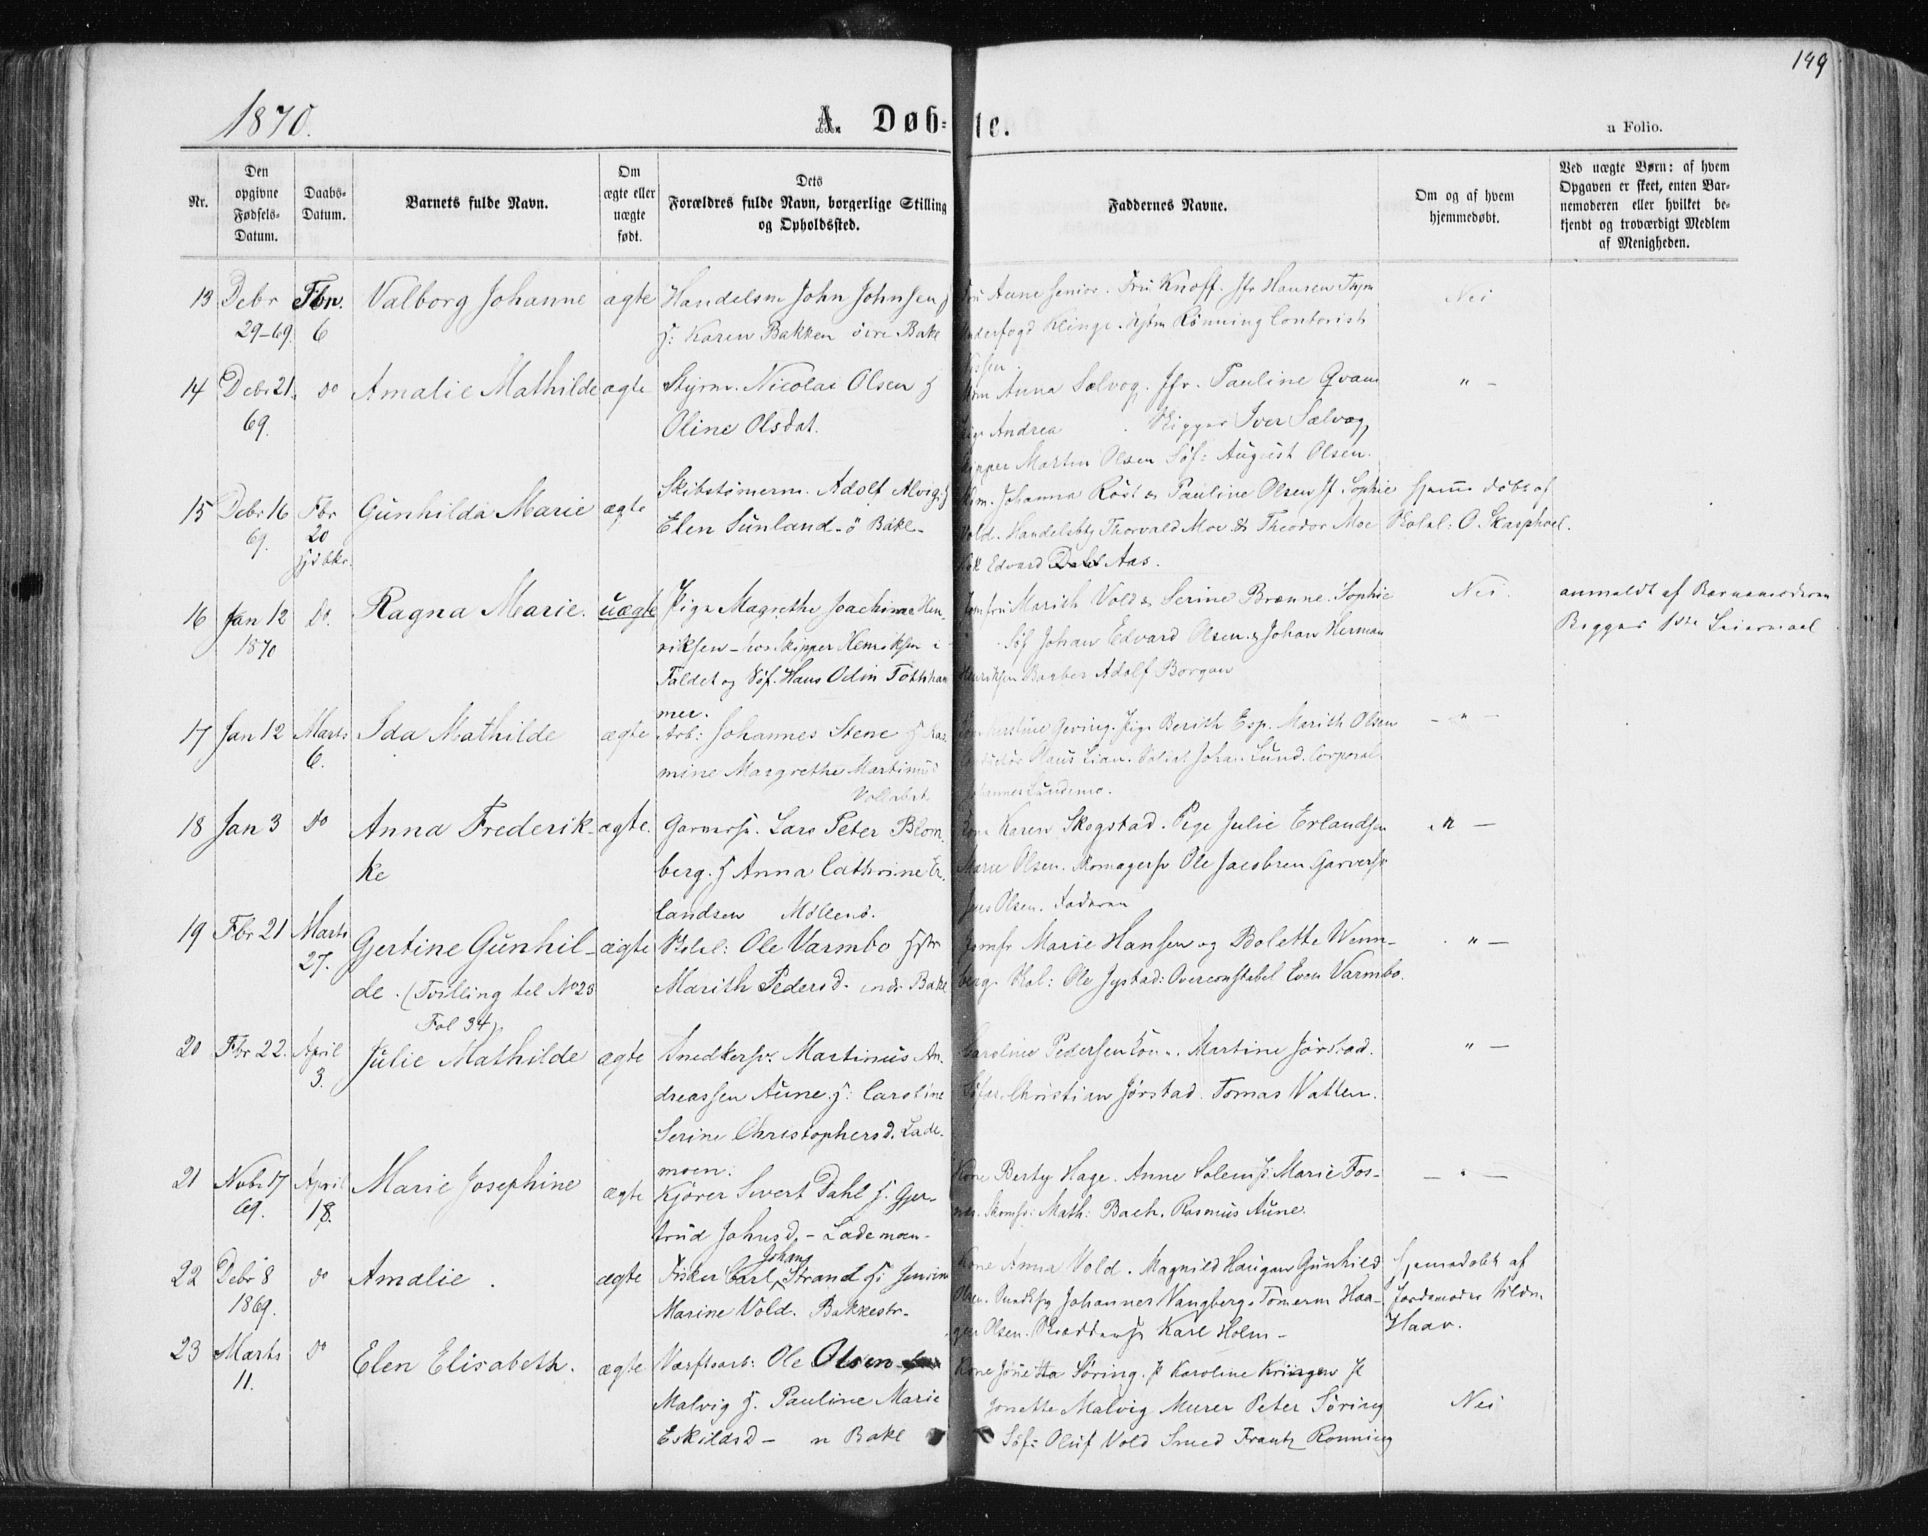 149
1870.
A. Døb-te.
a Folio.
Nr.
Den opgivne Fødsels-Datum.
Daabs-Datum.
Barnets fulde Navn.
Om ægte eller uægte født.
Dets Forældres fulde Navn, borgerlige Stilling og Opholdssted.
Faddernes Navne.
Om og af hvem hjemmedøbt.
Ved uægte Børn: af hvem Opgaven er skeet, enten Barnemoderen eller hvilket bekjendt og troværdigt Medlem af Menigheden.
13 Debr 29-69. Fbr. 6 Valborg Johanne ægte
Handelsm John Johnsen
H: Karen Bakken övre Bakl
Aune senior. Fru Knoff. Jfr Hansen
Klinge. Rönning Contorist
Nei
14 Debr 21. 69. do Amalie Mathilde ægte
Styrm. Nicolai Olsen H
Oline Olsdat.
Anna Sælvog. Jfr. Pauline Qvam
Andrea . Skipper Iver Sælvog
Martin Olsen Söf: August Olsen.
" -
15 Debr 16 69. Fbr 20 Gunhilda Marie ægte
Skibstömerm. Adolf Alvig. H
Elen Sunland - ö Bakl -
Johanna Röst & Pauline Olsen Jf Sophie
Vold. Handelsbtj Thorvald Moe & Theodor Moe
Edvard Dahl Aas.
Hjemmedöbt af
O. Skarphoel.
16 Jan 12 1870 Do. Ragna Marie. uægte
Pige Magrethe Joachime Hen-
riksen - hos Skipper Henriksen i
Faldet og Söf. Hans Odin Tottham
mer.
Jomfru Marith Vold & Serine Brænne. Sophie
Söf Johan Edvard Olsen & Johan Herman
Henriksen Barber Adolf Borgan
Nei.
anmeldt af Barnemoderen
Begges 1ste Leiermaal
17 Jan 12 Marts 6. Ida Mathilde ægte
Arb: Johannes Stene H Ras
mine Margrethe Martinus
Gering. Pige Berith Esp. Marith Olsen
Claus Lian. Johan Lund. Corporal
Johannes Lundemo.
- " -
18 Jan 3 do Anna Frederik- ægte.
ke
Garversv. Lars Peter Blom
berg. H Anna Cathrine Er-
landsen Möllenb.
Kone Karen Skogstad. Pige Julie Erlandsen
Marie Olsen. Skomagersv Ole Jacobsen Garversv
Jens Olsen. Faderen
" -
19 Fbr 21 Marts 27. Gertine Gunhil- ægte
de. (Tvilling til No 28
Fol 34)
Ole Varmbo Hstr
Marith Pedersd. Bakl
Jomfr Marie Hansen og Bolette Wenn-
berg. Ole Jystad: Overconstabel Even Varmbo.
" -
20 Fbr 22. April 3. Julie Mathilde ægte
Snedkersv. Martinus An-
dreassen Aune. H: Caroline
Serine Christophersd. Lade-
moen.
Caroline Pedersen Kone. Martine Jörstad.
Christian Jörstad. Tomas Vatten.
" -
21 Nobr 17 69. April 18. Marie Josephine ægte
Kjörer Sivert Dahl H. Gjer-
trud Johnsd. - Lademoen -
Kone Berty Hage. Anne Solem Jf. Marie Fos-
nes. Math: Bach. Rasmus Aune.
- " -
22 Debr 8 1869. do Amalie. ægte
Fisker Carl Johan Strand H: Jensine
Marine Vold. Bakkestr.
Kone Anna Vold. Magnild Haugan Gunhild
Olsen. Johannes Vangberg. Tömerm Haa-
gen Olsen. Skræddersv Karl Holm -
Hjemmedöbt af
Jordemoder
Haav.
23 Marts 11. do Elen Elisabeth. ægte
Værftsarb: Ole Olsen
Malvig H. Pauline Marie
Eskildsd - n Bakl
Kone Jonetta Söring. P Karoline Kringen P
Jonette Malvig Murer Peter Söring
Söf: Oluf Vold Smed Frantz Rönning
Nei